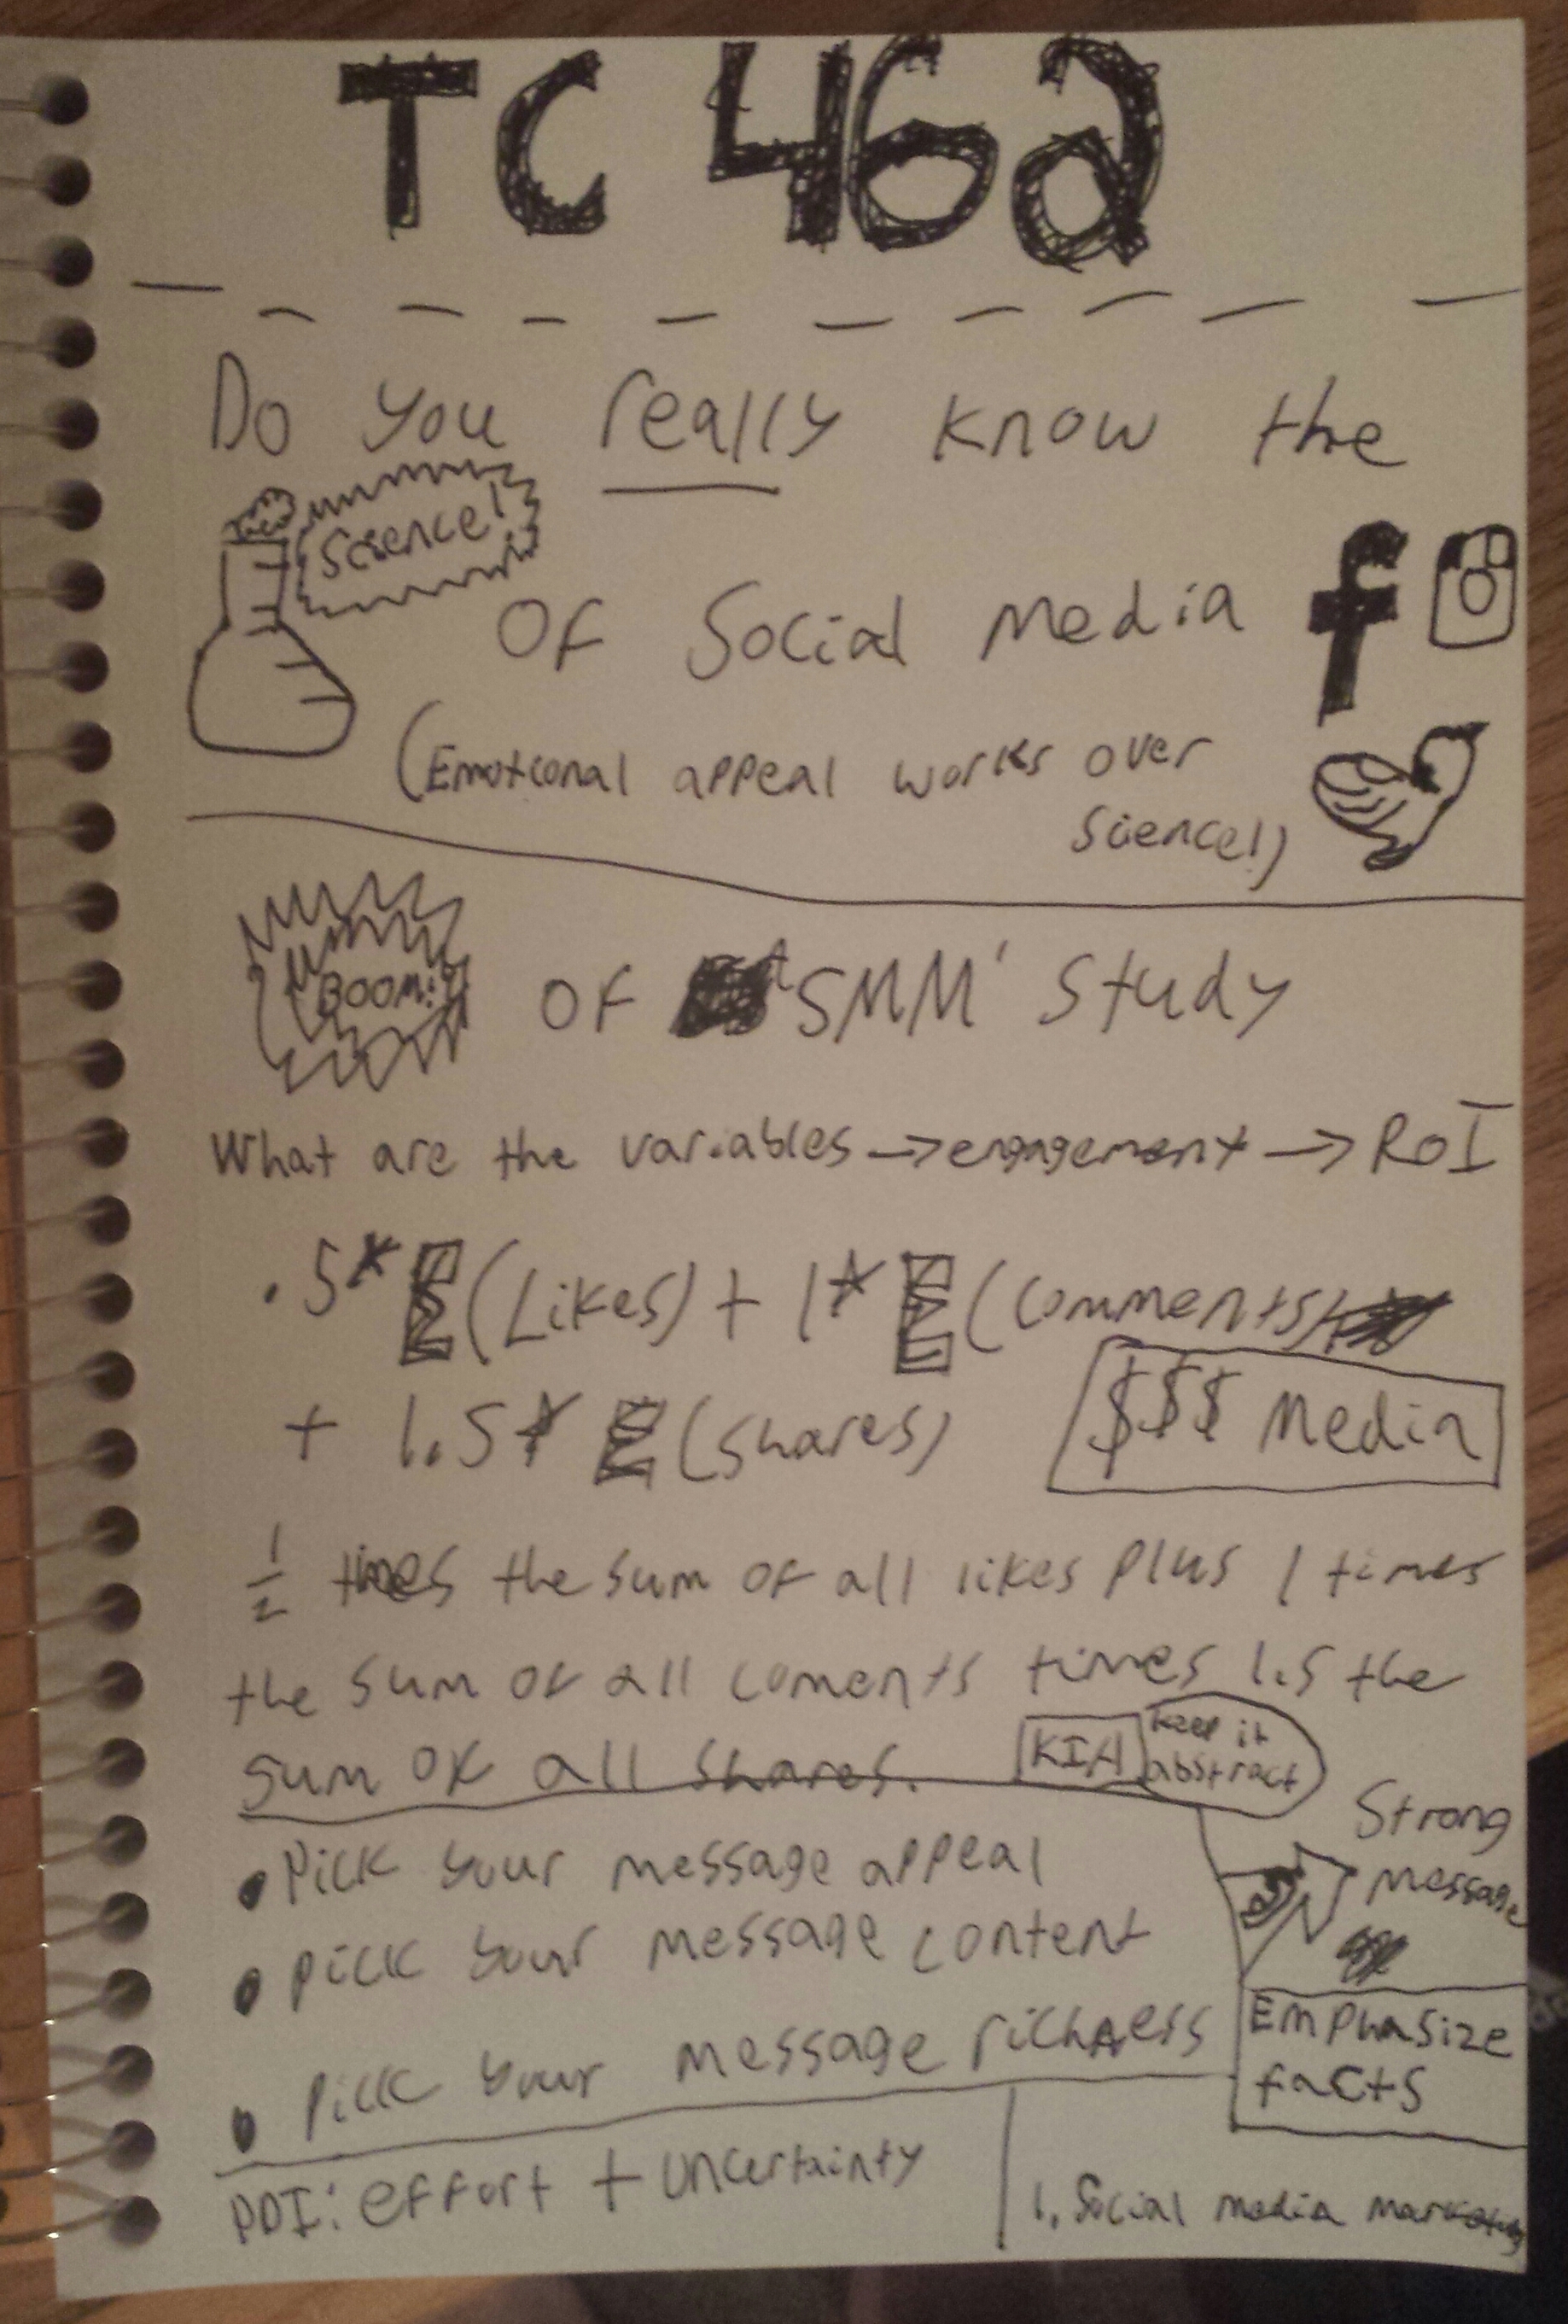 TC 462
Do you really know the
Science!
of Social Media f
(Emotional appeal works over
Science!)
BOOM!
of 'SMM' study
What are the variables → engagement → RoI
.5* Σ(Likes) + 1* Σ(comments)
+ 1.5* Σ(shares)
$$$ Media
1/2 times the sum of all likes plus 1 times
the sum of all coments times 1.5 the
sum of all shares.
KIA
keep it
abstract
• Pick your message appeal
• pick your message content
• pick your message richness
Strong
message
Emphasize
facts
PDI: effort + uncertainty
1. Social media marketing